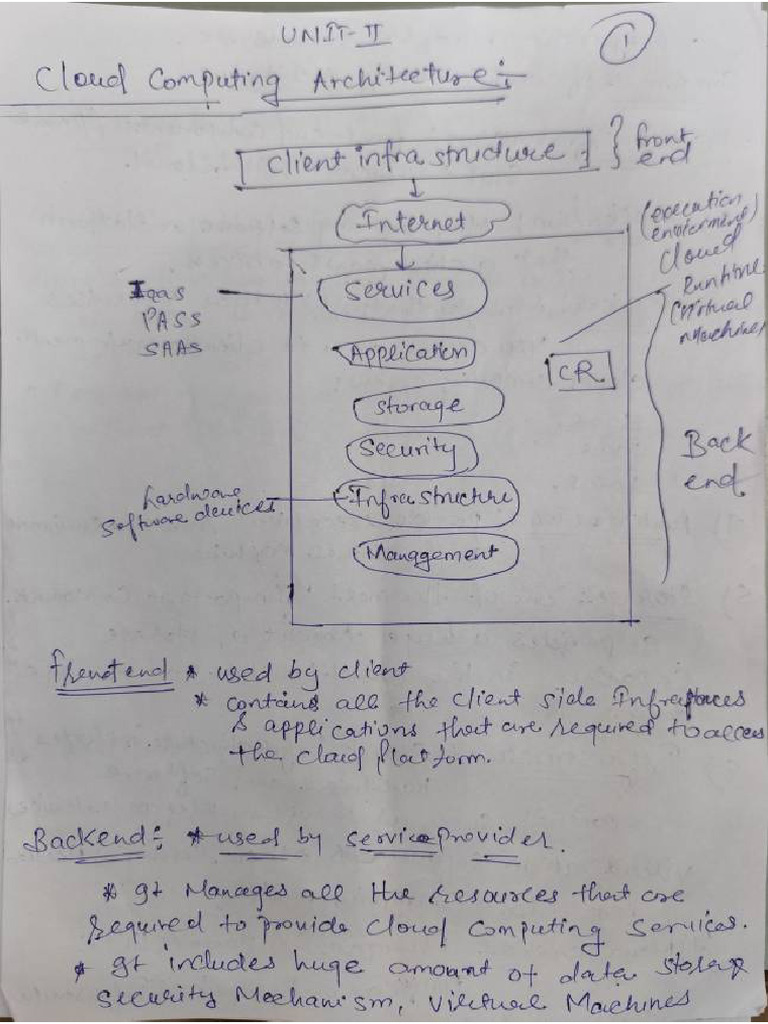 UNIT-II
1
Cloud Computing Architecture:-
Client infra structure
front
end
Internet
(execution
enviornment)
Cloud
Runtime
(Virtual
Machines
Iaas
PASS
SAAS
Services
Application
CR
Storage
Security
Back
end
hardware
software devices.
Infra structure
Management
frontend * used by client
* contains all the client side
& applications that are required to access
the cloud platform.
Backend:- * used by service provider.
* It Manages all the resources that are
required to provide Cloud Computing Services.
* It includes huge amount of data storage
Security Mechanism, Virtual Machines